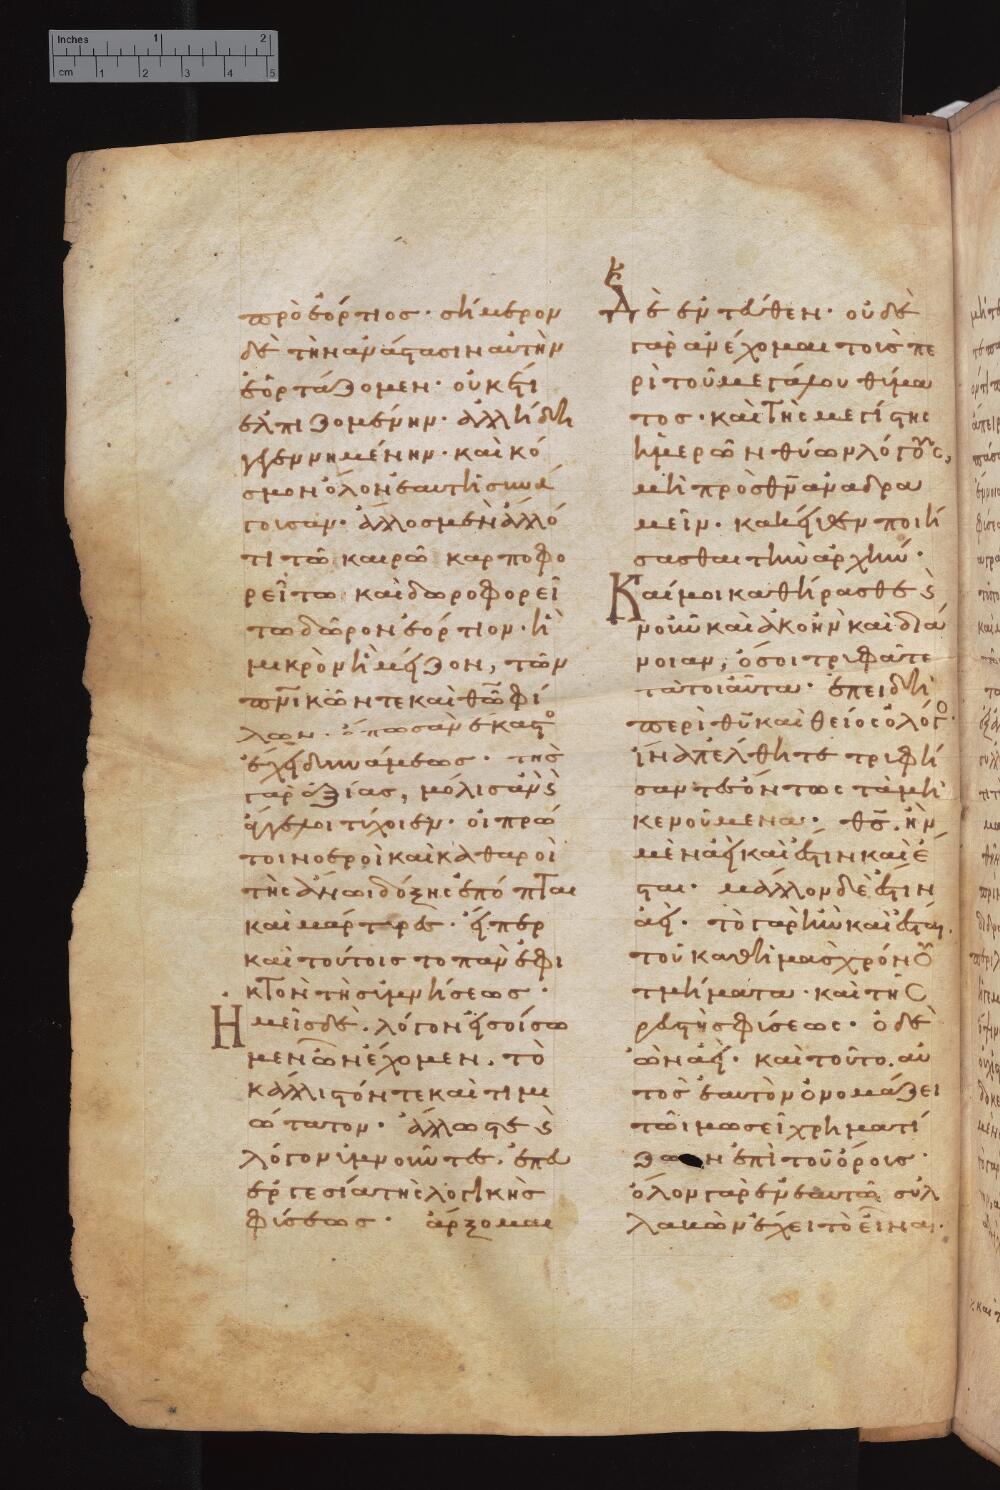 προεόρτιος· σήμερον
δὲ τὴν ἀνάστασιν αὐτὴν
ἑορτάζομεν· οὐκ ἔτι
ἐλπιζομένην· ἀλλ' ἤδη
γεγενημένην· καὶ κό
σμον ὅλον ἑαυτῆ συνά
γουσαν· ἄλλος μὲν ἄλλό
τι τῶ καιρῶ καρποφο
ρείτω καὶ δωροφορεί
τω δῶρον ἑόρτιον· ἢ
μικρὸν ἢ μεῖζον, τῶν
πνικῶν τε καὶ θῶ φί
λων· ὅπως ἂν ἕκαστο
ἔχει δυνάμεως· τῆς
γὰρ ἀξίας, μόλις ἂν καὶ
ἄγγελοι τύχοιεν· οἱ πρῶ
τοι νοεροὶ καὶ καθαροὶ
τῆς ἄνω δόξης ἐπόπται
καὶ μάρτυρες· εἴπερ
καὶ τούτοις τὸ πᾶν ἐφι
κτὸν τῆς ὑμνήσεως·
Ημεῖς δὲ λόγον εἰσοίσω
μεν ὧν ἔχομεν· τὸ
κάλλιστόν τε καὶ τιμι
ώτατον· ἄλλως τε καὶ
λόγον ὑμνοῦντες· ἐπευ
εργεσία τῆς λογικῆς
φύσεως· ἄρξομαι
δὲ ἐντεῦθεν· οὐδὲ
γὰρ ἀνέχομαι τοῖς πε
ρὶ τοῦ μεγάλου θύμα
τος· καὶ τῆς μεγίστης
ἡμερῶν θύων λόγους,
μὴ πρὸς θν ἀναδρα
μεῖν· κἀκεῖθεν ποιή
σασθαι τὴν ἀρχήν·
Καί μοι καθήρασθε καὶ
νοῦν καὶ ἀκοὴν καὶ διά
νοιαν, ὅσοι τρυφᾶτε
τὰ τοιαῦτα· ἐπειδὴ
περὶ θυ καὶ θεῖος ὁ λόγος·
ἵν' ἀπέλθητε τρυφή
σαντες ὄντως τὰ μὴ
κενούμενα· θς ἦν
μὲν ἀεὶ καὶ ἔστιν καὶ ἔ
σται· μᾶλλον δὲ ἔστιν
ἀεί· τὸ γὰρ ἦν καὶ ἔσται,
τοῦ καθ' ἡμᾶς χρόνου
τμήματα· καὶ τῆς
ρευστῆς φύσεως· ὁ δὲ
ὢν ἀεί· καὶ τοῦτο αὐ
τὸς ἑαυτὸν ὀνομάζει
τῶ μωσεῖ χρηματί
ζων ἐπὶ τοῦ ὄρους·
ὅλον γὰρ ἐν ἑαυτῶ συλ
λαβὼν ἔχει τὸ εἶναι·